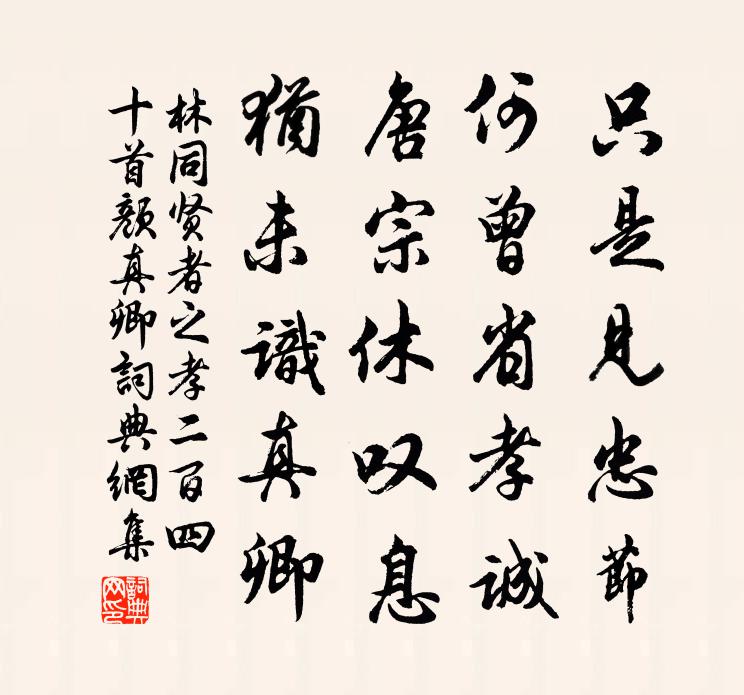 只是見忠節
何曾省孝誠
唐宗休叹息
猶未識真卿
林同贤者之孝二百四
十首颜真卿詞典網集